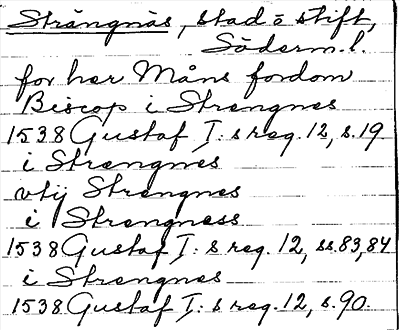 Strängnäs, stad o stift,
Söderm.l.
for her Måns fordom
Biscop i Strengnes
1538 Gustaf I:s reg. 12, s.19
i Strengnes
vtij Strengnes
i Strengness
1538 Gustaf I:s reg. 12, ss.83,84
i Strengnes
1538 Gustaf I:s reg. 12, s.90.